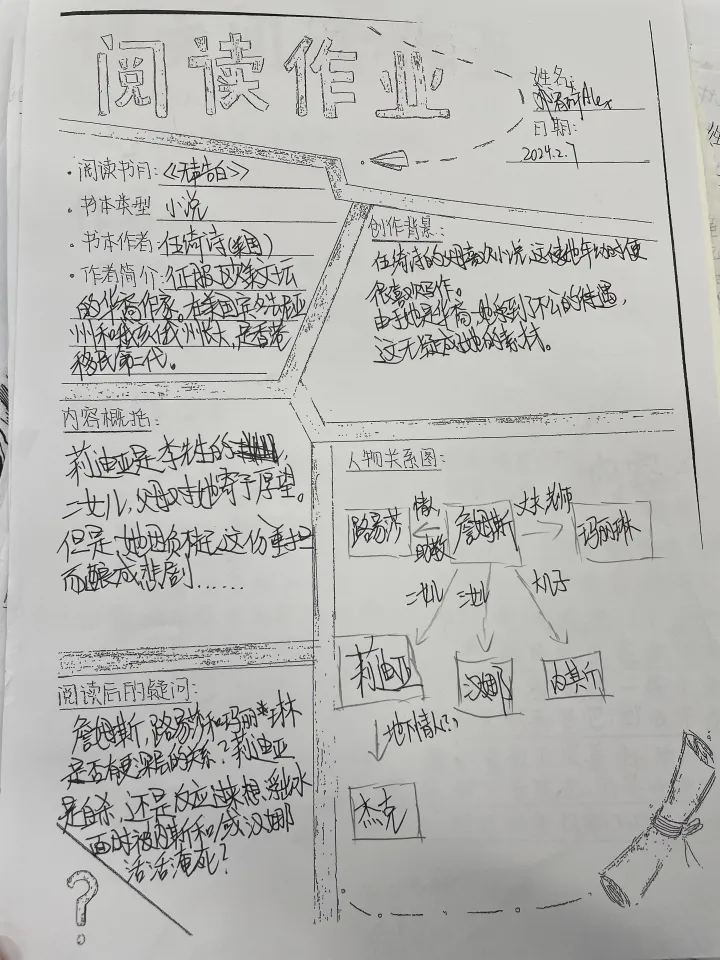 阅读作业
姓名:
Alex
日期:
2024.2.7
·阅读书目:《无声告白》
·书本类型 小说
·书本作者:伍绮诗(美国)
·作者简介:征服欧美文坛
的华裔作家。在美国宾夕法尼亚
州和俄亥俄州长大,是香港
移民第二代。
创作背景:
伍绮诗的父母喜欢小说,这使她年幼时便
很喜欢写作。
由于她是华裔,她受到了不公的待遇,
这无疑成她的素材。
内容概括:
莉迪亚是李先生的
二女儿,父母对她寄予厚望。
但是,她因负担不这份重担
而酿成悲剧......
人物关系图:
路易莎
情人
助教
詹姆斯
丈夫 老师
玛丽琳
二女儿
三女儿
大儿子
莉迪亚
汉娜
内斯
地下情人(?)
杰克
阅读后的疑问:
詹姆斯,路易莎和玛丽琳
是否有更深层的关系?莉迪亚
是自杀,还是反应过来想浮出水
面时被内斯和 汉娜
活活淹死?
?